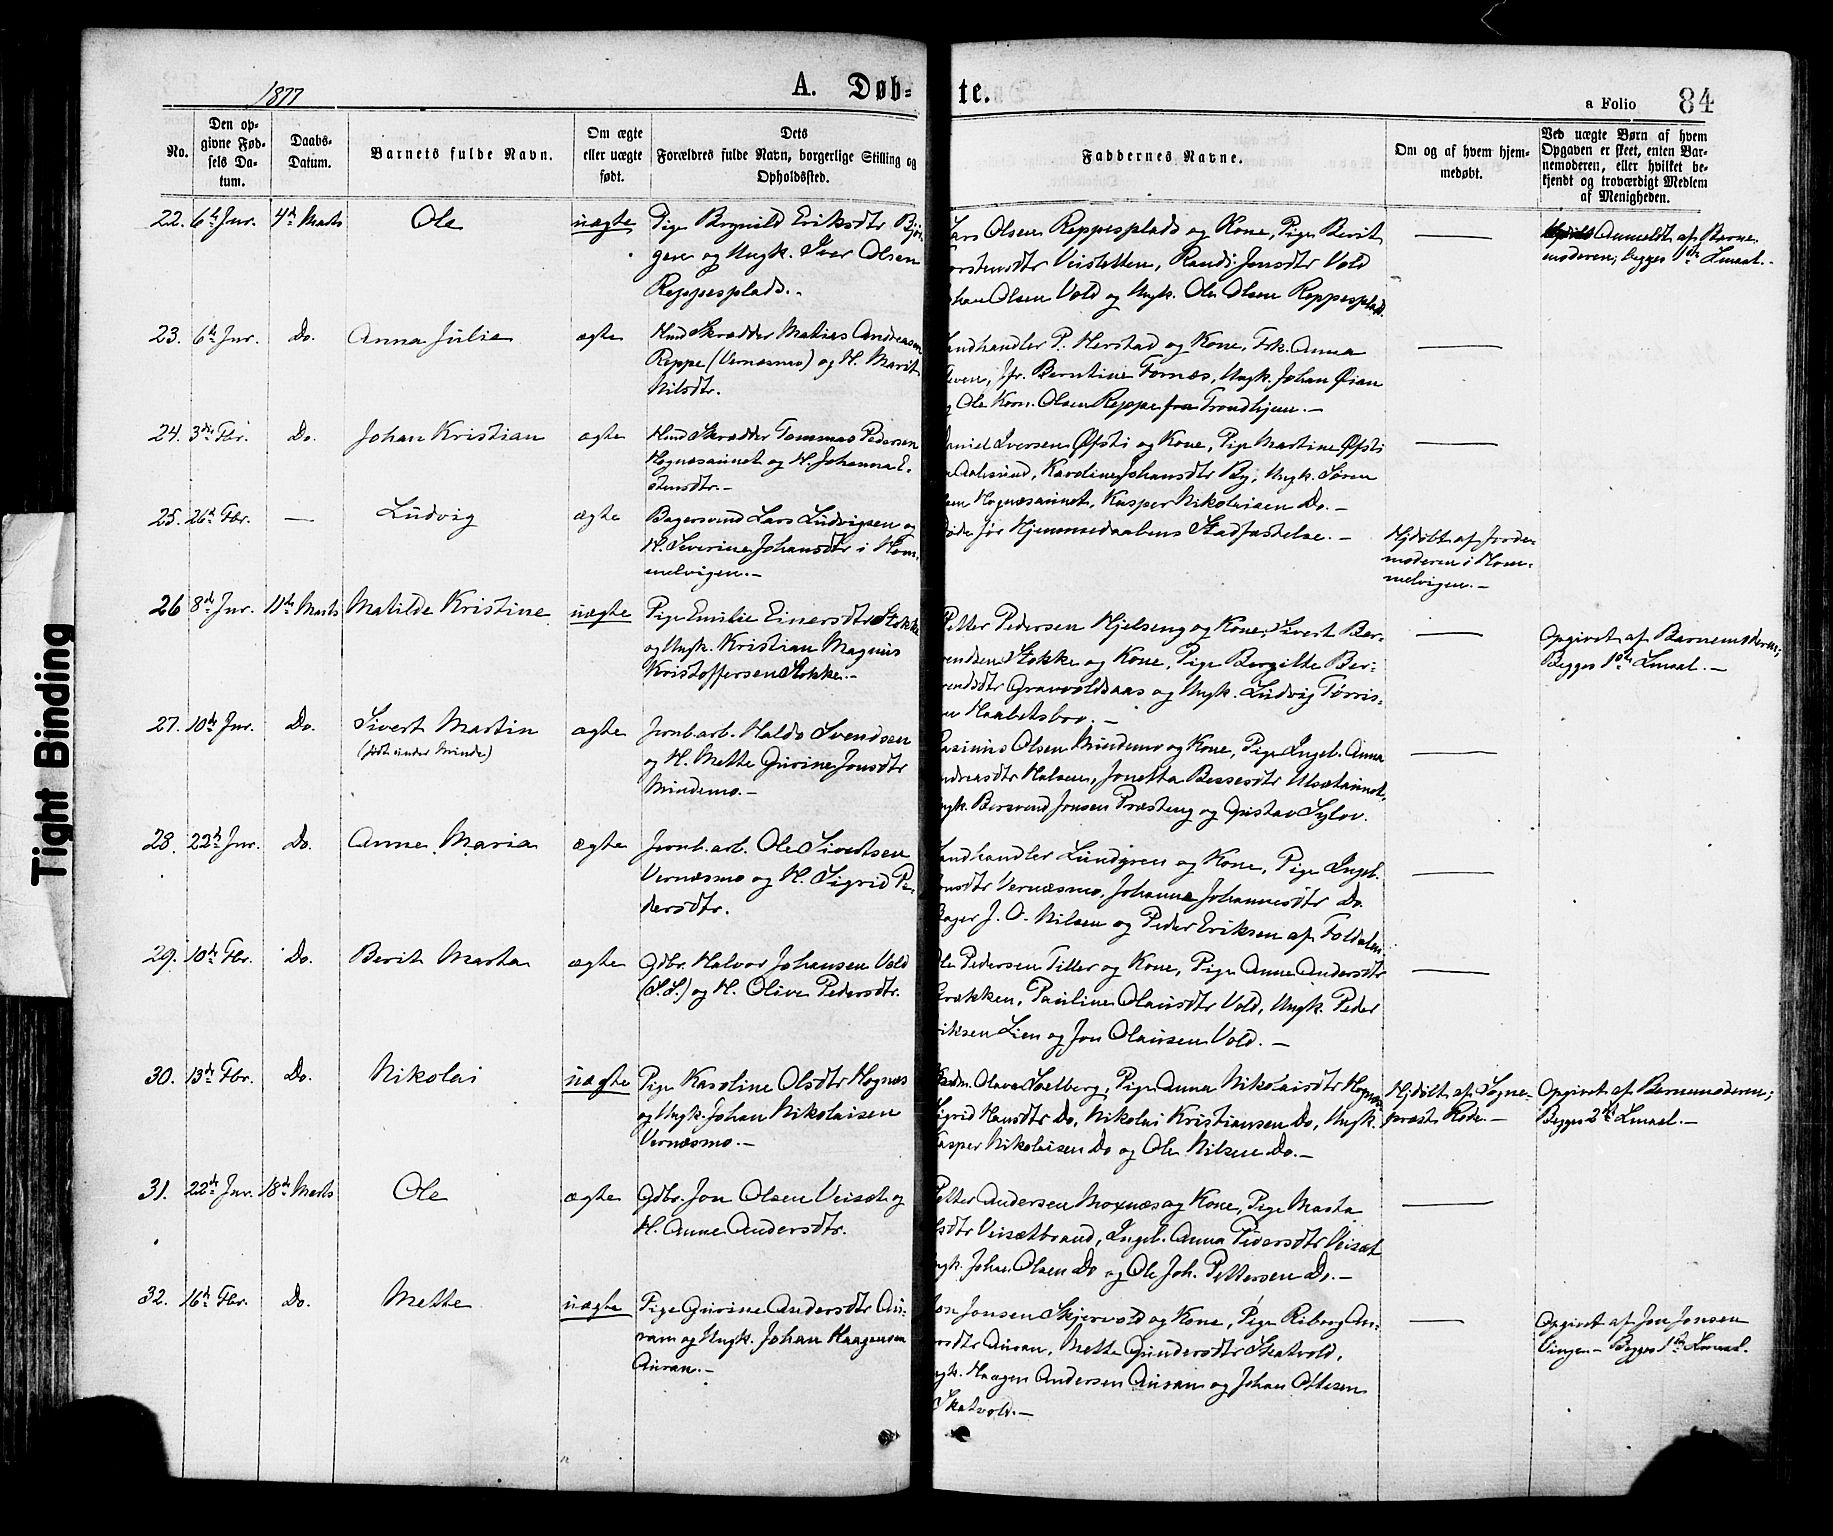 1877
A. Døb-
te.
a Folio 84
No.
Den op-
givne Fød-
sels Da-
tum.
Daabs-
Datum.
Barnets fulde Navn.
Om ægte
eller uægte
født.
Dets
Forældres fulde Navn, borgerlige Stilling og
Opholdssted.
Faddernes Navne.
Om og af hvem hjem-
medøbt.
Ved uægte Børn af hvem
Opgaven er skeet, enten Bar-
nemoderen, eller hvilket be-
kjendt og troværdigt Medlem
af Menigheden.
22. 6te Jnr. 4de Marts Ole uægte Pige Brynild Eriksdtr Bjør-
gen og Ungk. Iver Olsen
Reppesplads.-
Lars Olsen Reppesplads og Kone, Pige Berit
Torstensdtr Veistetten, Randi Jonsdtr Vold
Johan Olsen Vold og Ungk. Ole Olsen Reppesplads.
Anmeldt af Barne-
moderen; begges 1ste Lmaal.-
23. 6te Jnr. Do. Anna Julie ægte Hmd Skrædder Matias Andreasen
Reppe (Vernæsmo) og H. Marit
Nilsdtr.
Landhandler P. Herstad og Kone, Frk. Anna
Jfr. Berntine Fornæs, Ungk. Johan Øian
og Ole Korn. Olsen Reppe fra Trondhjem.-
24. 3die Fbr. Do. Johan Kristian ægte Hmd Skrædder Tommas Pedersen
Hognesaunet og H. Johanna E-
stensdtr.-
Daniel Iversen Øfsti og Kone, Pige Martine Øfsti
Aalesund, Karoline Johansdtr By, Ungk. Søren
Hognesaunet, Kasper Nikolaisen Do.-
25. 26de Fbr. — Ludvig ægte Bagersvend Lars Ludvigsen og
H. Severine Johansdtr i Hom-
melvigen.-
Døde før Hjemmedaabens Stadfæstelse.-
Hjdøbt af Jorde-
moderen i Hom-
melvigen.-
26 8de Jnr. 11te Marts Matilde Kristine uægte Pige Emilie Einersdtr Stokke
og Ungk. Kristian Magnus
Kristoffersen Stokke.-
Petter Pedersen Hjelseng og Kone, Sivert Ber-
rendsen Stokke og Kone, Pige Bergitte Ber-
rendsdtr Gravvoldsaas og Ungk. Ludvig Tørris-
sen Haabetsbro.-
Opgivet af Barnemoderen;
Begges 1ste Lmaal.-
27. 10de Jnr. Do. Sivert Martin
(født under Minde)
ægte Jernb.arb. Haldo Svendsen
og H. Mette Gurine Jonsdtr
Mindemo.-
Rasmus Olsen Mindemo og Kone, Pige Ingeb. Anna
Andreasdtr Halsen, Jonetta Bessesdtr Ulsetaunet,
Ungk. Bersvend Jonsen Præsteng og Gustav Sylov.
28. 22de Jnr. Do. Anne Maria ægte Jernb.arb. Ole Sivertsen
Vernæsmo og H. Sigrid Pe-
dersdtr.
Landhandler Lundgren og Kone, Pige Ingeb.
Jonsdtr Vernæsmo, Johanna Johannesdtr Do.
Bager J. O. Nilsen og Peder Eriksen af Foldalen
29. 10de Fbr. Do. Berit Marta ægte Gdbr. Halvor Johansen Vold
(S.S.) og H. Olive Pedersdtr.
Ole Pedersen Tiller og Kone, Pige Anne Andersdtr
Brækken, Pauline Olausdtr Vold, Ungk. Peder
Eriksen Lien og Jon Olaussen Vold.-
30. 13de Fbr. Do. Nikolai uægte Pige Karoline Olsdtr Hognes
og Ungk. Johan Nikolaisen
Vernæsmo.-
Olava Solberg, Pige Anna Nikolaisdtr Hognes
Sigrid Hansdtr Do, Nikolai Kristiansen Do, Ungk.
Kasper Nikolaisen Do og Ole Nilsen Do.-
Hjdøbt af Sogne-
præst Rode.-
Opgivet af Barnemoderen;
Begges 2det Lmaal.-
31. 22de Jnr. 18de Marts Ole ægte Gdbr. Jon Olsen Veiset og
H. Anne Andersdtr.
Petter Andersen Moxnæs og Kone, Pige Marta
Olsdtr Veisetbrand, Ingeb. Anna Pedersdtr Veiset
Ungk. Johan Olsen Do og Ole Joh. Pettersen Do.-
32. 16de Fbr. Do. Mette uægte Pige Gurine Andersdtr Au-
ran og Ungk. Johan Haagensen
Auran.-
Jon Jonsen Skjervold og Kone, Pige Riborg An-
dersdtr Auran, Mette Gundersdtr Skatvold,
Ungk. Haagen Andersen Auran og Johan Ottesen
Skatvold.-
Opgivet af Jon Jonsen
Vingen.- Begges 1ste Lmaal.
Tight Binding